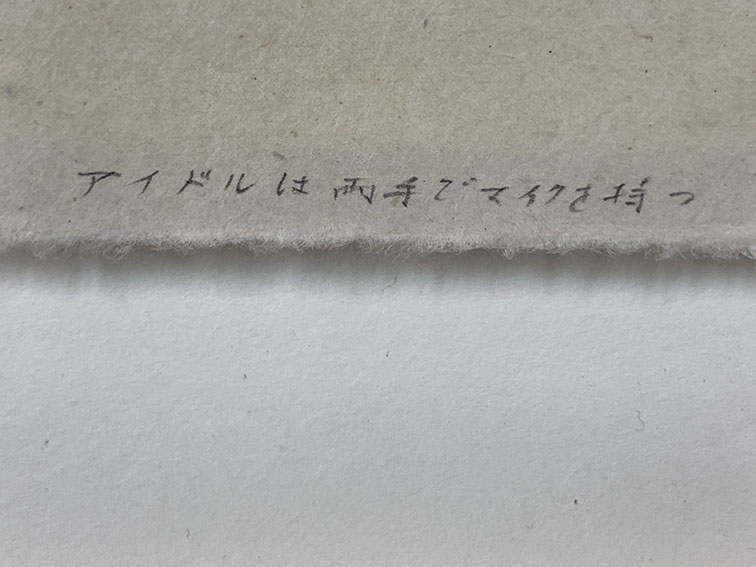 アイドルは両手でマイクを持つ